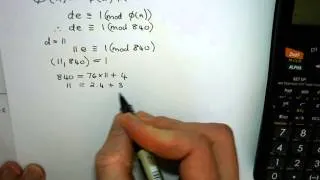 de ≡ 1 (mod φ(n))
→ de ≡ 1 (mod 840)
d = 11
11e ≡ 1 (mod 840)
(11, 840) = 1
840 = 76×11 + 4
11 = 2.4 + 3